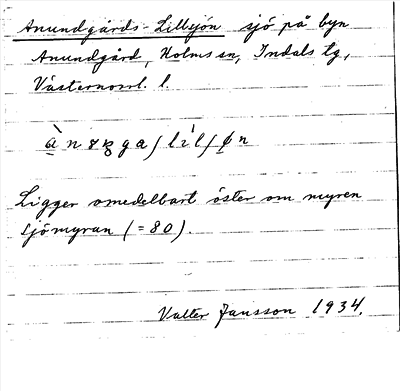 Anundgårds-Lillsjön sjö på byn
Anundgård, Holms sn, Indals tg,
Västernorrl. l.
Ligger omedelbart öster om myren
Sjömyran (=80).
Valter Jansson 1934.